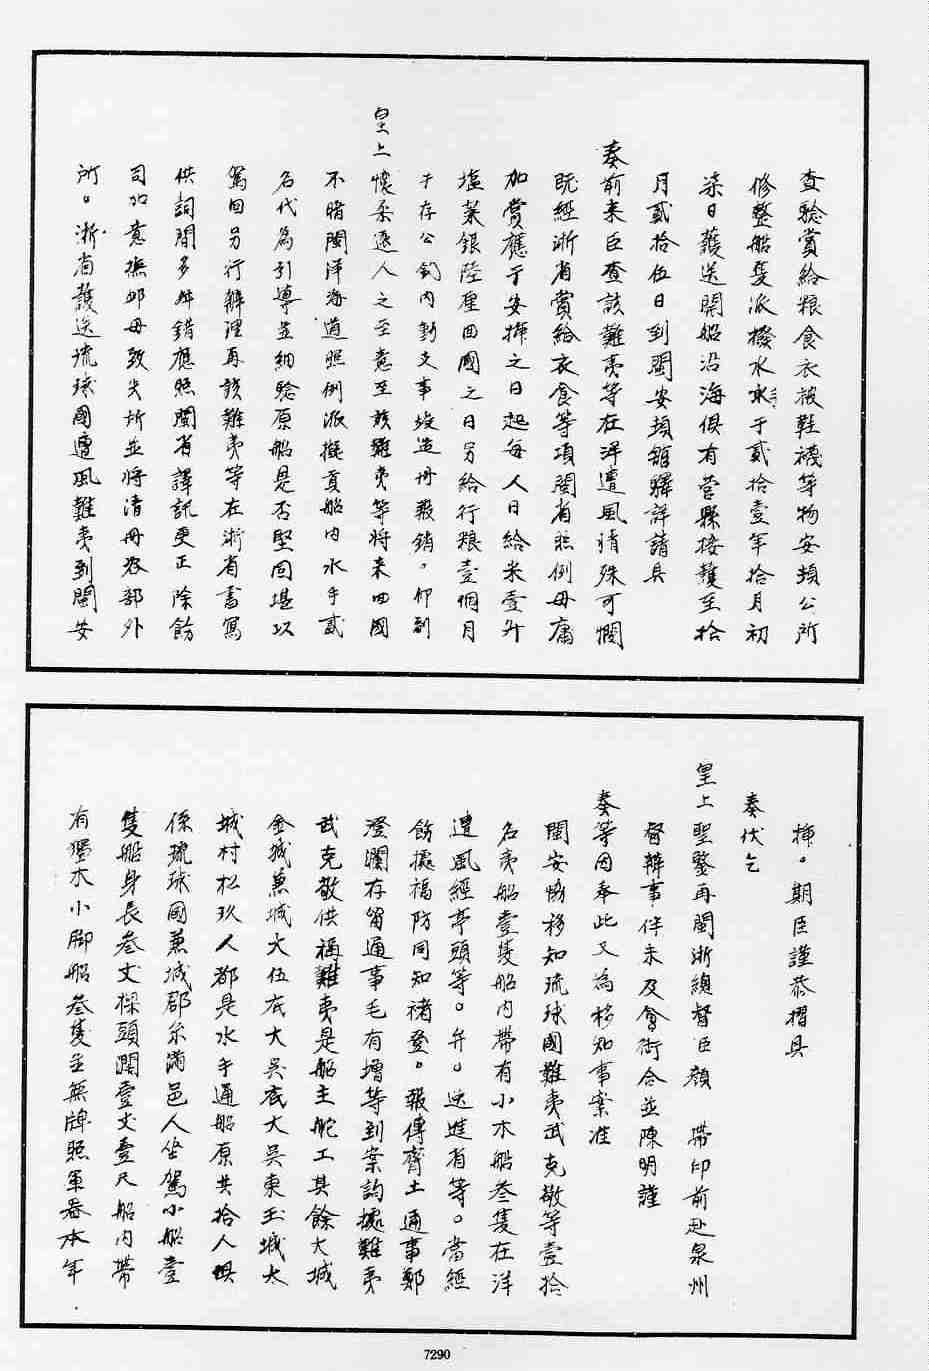 查驗賞給粮食衣被鞋襪等物安頓公所
修整船隻派撥水水手于貳拾壹年拾月初
柒日護送開船沿海俱有營縣接護至拾
月貳拾伍日到閩安頓舘驛詳請具
奏前来臣查該難夷等在洋遭風情殊可憫
既經浙省賞給衣食等項閩省照例毋庸
加賞應于安揷之日起每人日給米壹升
塩菜銀陸厘回國之日另給行粮壹個月
于存公銀內動支事竣造冊報銷。仰副
皇上懷柔遠人之至意至該難夷等將来回國
不晴閩洋海道照例派撥貢船內水手貳
名代為引導並細驗原船是否堅固堪以
駕回另行辦理再該難夷等在浙省書寫
供詞間多舛錯應照閩省譯訊更正除飭
司加意撫卹毋致失所並將清冊咨部外
所。浙省護送琉球國遭風難夷到閩安
揷。期臣謹恭摺具
奏伏乞
皇上聖鑒再閩浙總督臣顏 帶印前赴泉州
督辦事件未及會銜合並陳明謹
奏等因奉此又為移知事案准
閩安恊移知琉球國難夷武克敬等壹拾
名夷船壹隻船內帶有小木船叁隻在洋
遭風經亭頭等。弁。送進省等。當經
飭據福防同知褚登。報傳齊土通事鄭
澄瀾存留通事毛有增等到案詢據難夷
武克敬供福難夷是船主舵工其餘大城
金城蕙城大伍底大吳底大吳東玉城大
城村松玖人都是水手通船原共拾人俱
係琉球國蕙城郡糸滿邑人坐駕小船壹
隻船身長叁丈樑頭濶壹丈壹尺船內帶
有獨木小脚船叁隻並無牌照軍器本年
7290